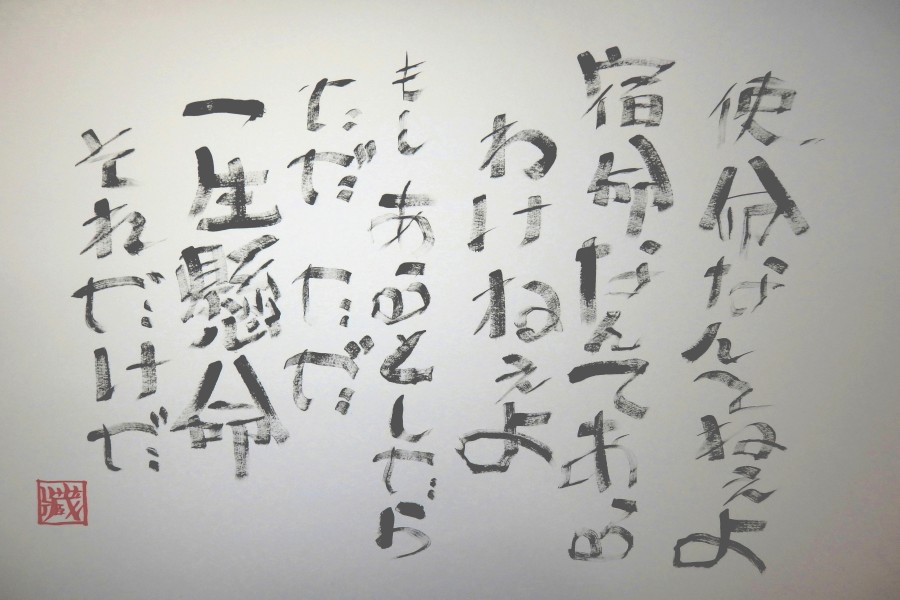 使命なんてねぇよ
宿命なんてある
わけねぇよ
もしあるとしたら
ただただ
一生懸命
それだけだ